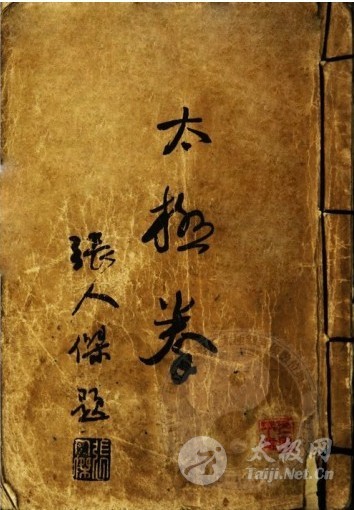 太極拳
張人傑題
太极网
Taiji.Net.Cn